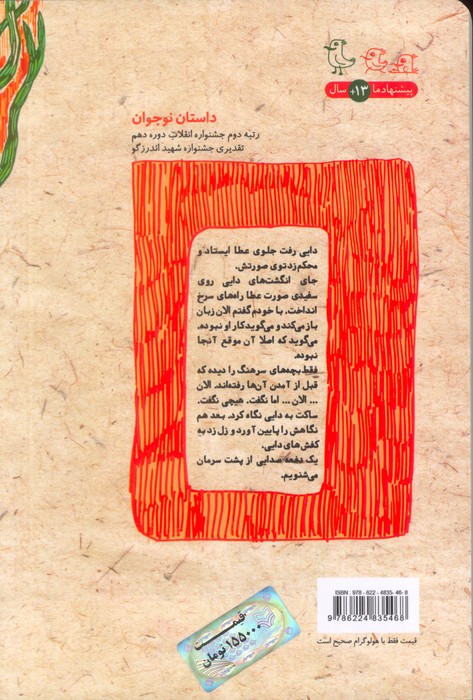 پیشنهاد ما +۱۳ سال
داستان نوجوان
رتبه دوم جشنواره انقلاب دوره دهم
تقدیری جشنوازه شهید اندرزگو
دایی رفت جلوی عطا ایستاد و
محکم زد توی صورتش.
جای انگشت‌های دایی روی
سفیدی صورت عطا راه‌های سرخ
انداخت. با خودم گفتم الان زبان
باز می‌کند و می‌گوید کار او نبوده.
می‌گوید که اصلا آن موقع آنجا
نبوده.
فقط بچه‌های سرهنگ را دیده که
قبل از آمدن آن‌ها رفته‌اند. الان
... الان ... اما نگفت. هیچی نگفت.
ساکت به دایی نگاه کرد. بعد هم
نگاهش را پایین آورد و زل زد به
کفش‌های دایی.
یک دفعه صدایی از پشت سرمان
می‌شنویم.
ISBN: 978-622-4835-46-8
9 786224 835468
قیمت فقط با هولوگرام صحیح است
قیمت
۱۵۵۰۰۰ تومان